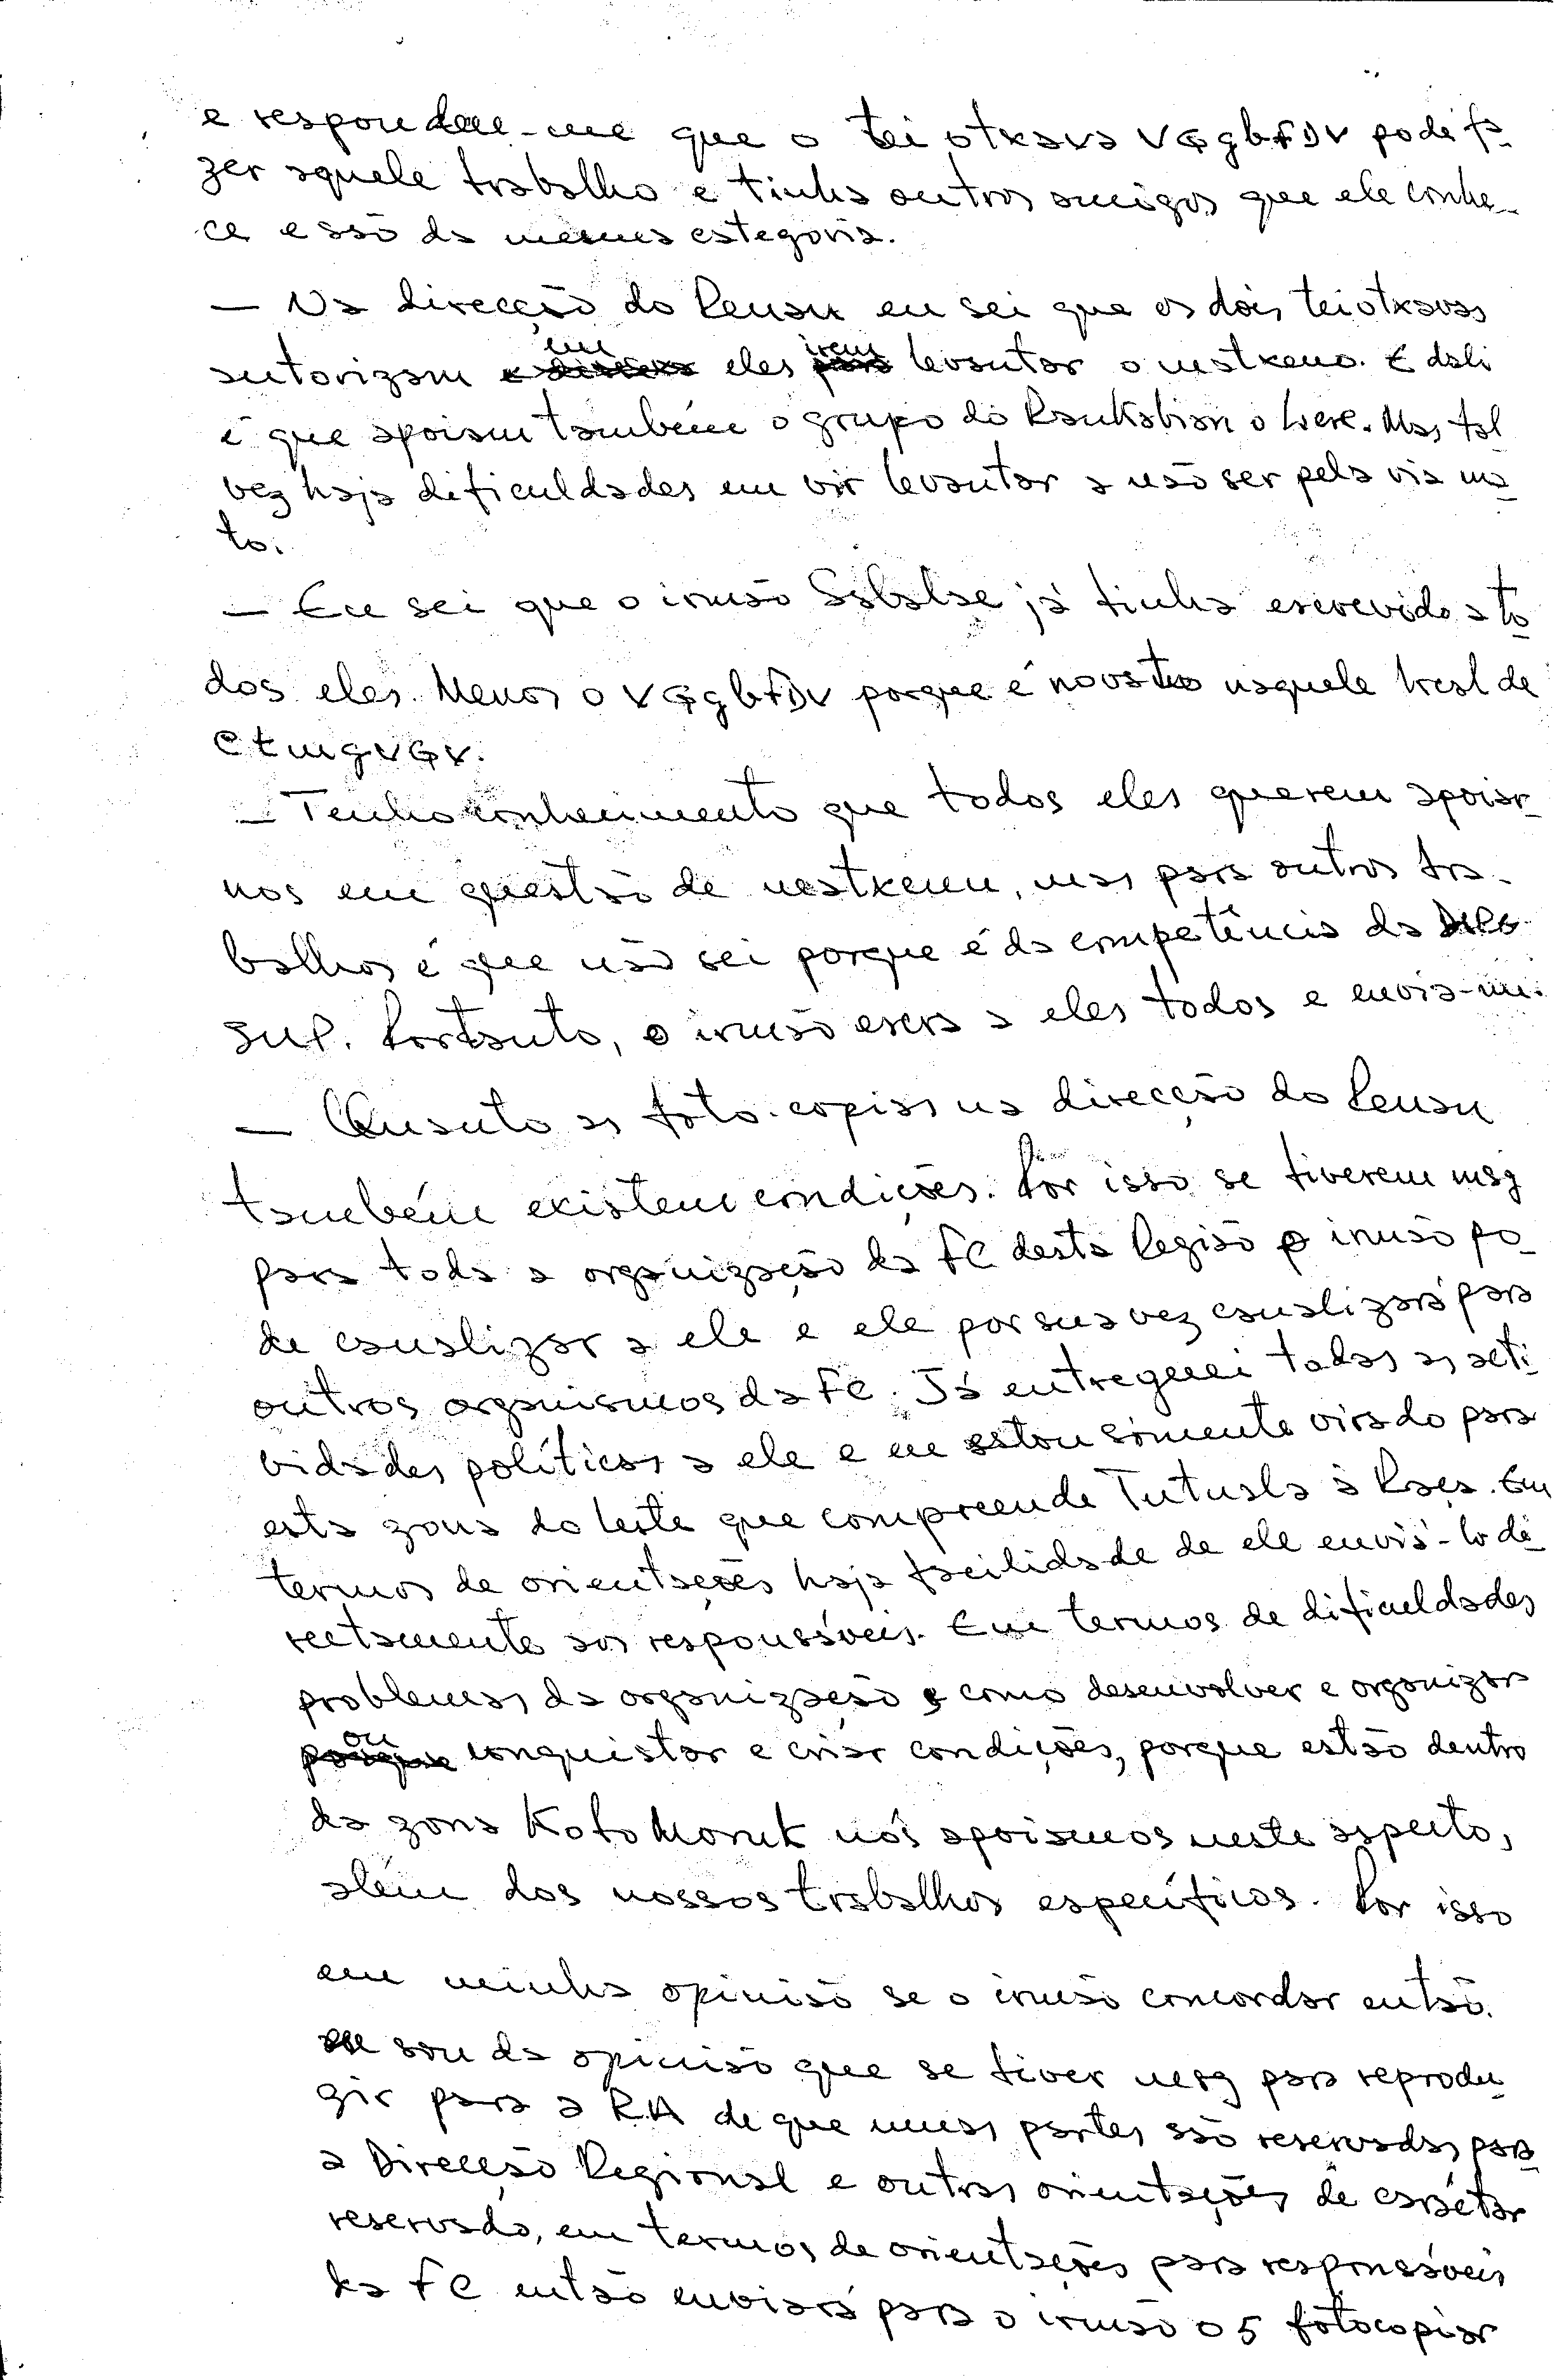 e responderam-me que o teiotxava VGgbfDV pode fa-
zer aquele trabalho e tinha outros amigos que ele conhe-
ce e são da mesma categoria.
— Na direcção do Renan eu sei que os dois teiotxavas
autorizam em eles irem levantar o natxeno. E dali
é que apoiam também o grupo do Rankabian o Lere. Mas tal
vez haja dificuldades em vir levantar a não ser pela via ma-
to.
— Eu sei que o irmão Sabalae já tinha escrevido a to-
dos eles. Menos o VGgbfDV porque é novato naquele local de
CtmgVGV.
— Tenho conhecimento que todos eles querem apoiar-
nos em questão de natxenu, mas para outros tra-
balhos é que não sei porque é da competência da
sup. Portanto, o irmão escra a eles todos e envia-mi.
— Quanto as foto-copias na direcção do Renan
também existem condições. Por isso se tiverem msg
para toda a organização da FC desta Região o irmão po-
de canalizar a ele e ele por sua vez canalizará para
outros organismos da FC. Já entreguei todas as acti-
vidades políticas a ele e eu estou sòmente virado para
esta zona do leste que compreende Tutuala à Raça. Em
termos de orientações haja facilidade de ele enviá-lo di-
rectamente aos responsáveis. Em termos de dificuldades
problemas da organização e como desenvolver e organizar
ou conquistar e criar condições, porque estão dentro
da zona Koto Moruk nós apoiamos neste aspecto,
além dos nossos trabalhos específicos. Por isso
em minha opinião se o irmão concordar então.
eu sou da opinião que se tiver msg para reprodu-
zir para a R.A de que umas partes são reservadas para
a Direcção Regional e outras orientações de caráctar
reservado, em termos de orientações para responsáveis
da FC então enviará para o irmão 05 fotocopiar